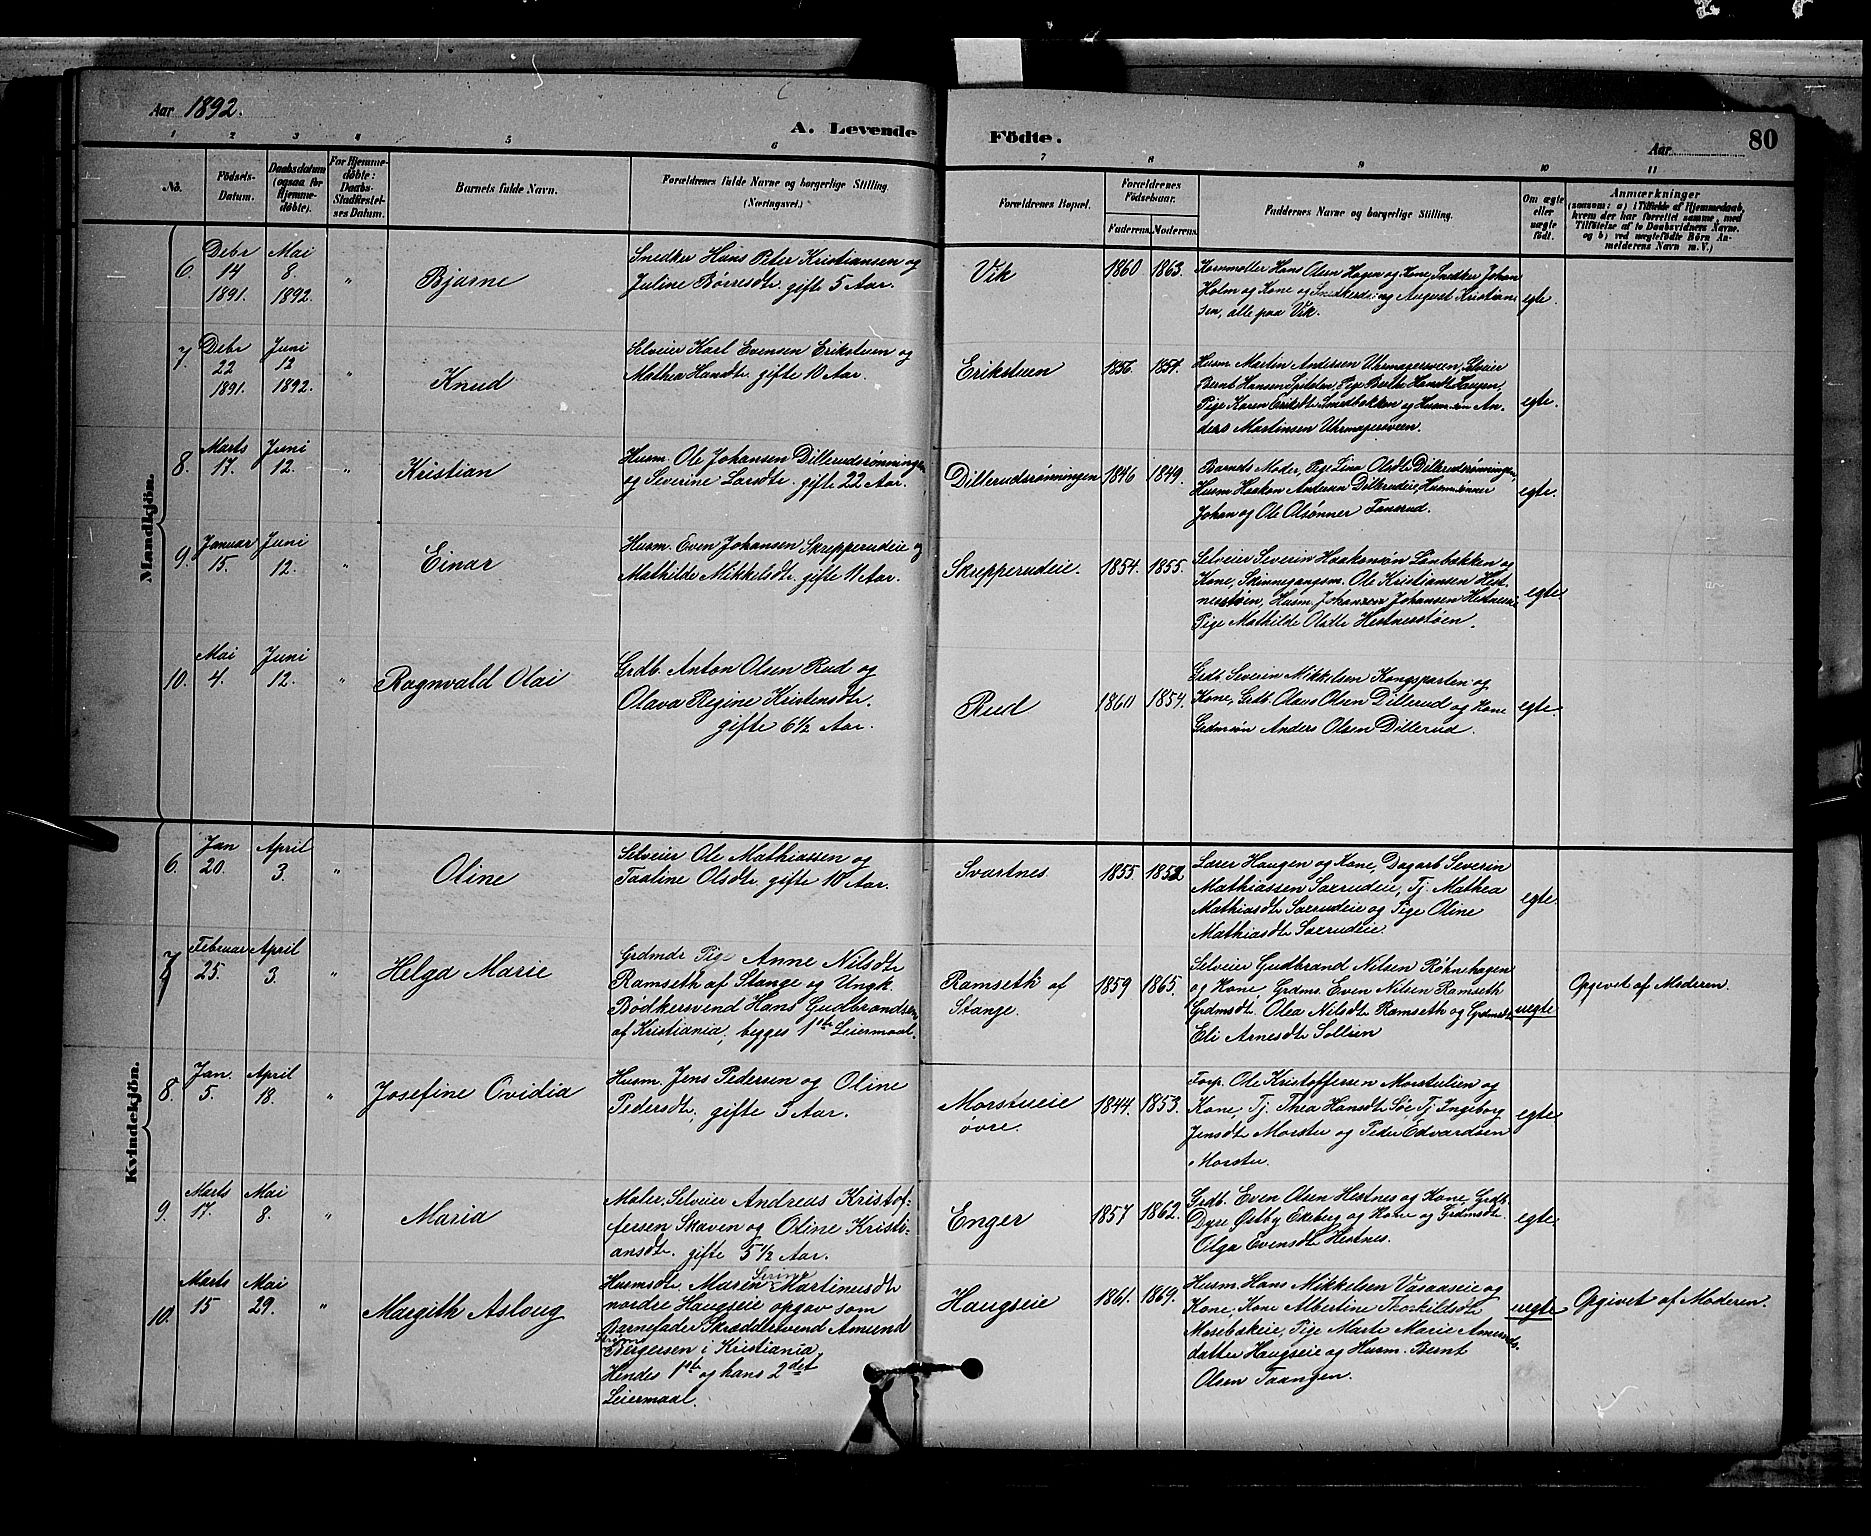 Aar 1892.
A. Levende Födte.
Aar 80
1 2 3 4 5 6 7 8 9 10 11
No.
Födsels-
Datum.
Daabsdatum
(ogsaa for
Hjemme-
døbte).
For Hjemme-
døbte:
Daabs-
Stadfæstel-
ses Datum.
Barnets fulde Navn.
Forældrenes fulde Navne og borgerlige Stilling.
(Næringsvei.)
Forældrenes Bopæl.
Forældrenes
Födselsaar.
Faderens. Moderens.
Faddernes Navne og borgerlige Stilling.
Om ægte
eller
uægte
født.
Anmærkninger
(saasom: a) i Tilfælde af Hjemmedaab,
hvem der har forrettet samme, med
Tilføielse af to Daabsvidners Navne,
og b) ved uægtefødte Børn An-
melderens Navn m. V.)
Mandkjön.
6. Debr 14 1891. Mai 8 1892. " Bjarne
Snedker Hans Peter Kristiansen og
Juline Børresdtr. gifte 5 Aar.
Vik 1860 1863.
Kornmøller Hans Olsen Hagen og Kone, Snedker Johan
Holm og Kone og Snedkerdreng August Kristian-
sen, alle paa Vik.
egte.
7. Debr 22 1891. Juni 12 1892. " Knud
Selveier Karl Evensen Eriksteen og
Mathea Hansdtr. gifte 10 Aar.
Eriksteen 1856 1854.
Husm. Martin Andersen Uhrmagersveen, Selveier
Bernt Hansen Spitalen, Pige Berte Hansdtr Haugen,
Pige Karen Eriksdtr Smedbakken og Husm. søn An-
ders Martinsen Uhrmagersveen.
egte.
8. Marts 17. Juni 12. " Kristian
Husm. Ole Johansen Dillerudsrønningen
og Severine Larsdtr. gifte 22 Aar.
Dillerudsrønningen 1846 1849.
Barnets Moder, Pige Lina Olsdtr Dillerudsrønningen,
Husm Haakon Andersen Dillerudeie, Husmsønner
Johan og Ole Olsønner Fauerud.
egte.
9. Januar 15. Juni 12. " Einar
Husm. Even Johansen Skrepperudeie og
Mathilde Mikkelsdtr. gifte 11 Aar.
Skrepperudeie. 1854. 1855.
Selveier Severin Haakensøn Lønbakken og
Kone, Skinnegangsm. Ole Kristiansen Hest-
nesstøen, Husm. Johannes Johansen Hestneseie
Pige Mathilde Olsdtr Hestnesstøen.
egte
10. Mai 4. Juni 12. " Ragnvald Olai
Grdb. Anton Olsen Rud og
Olava Regine Kristensdtr.
gifte 6½ Aar.
Rud 1860 1854.
Grdb Severin Mikkelsen Kongsparten og
Kone, Grdb. Olaus Olsen Dillerud og Kone
Grdmsøn Anders Olsen Dillerud.
egte.
Kvindekjön.
6. Jan 20. April 3. " Oline
Selveier Ole Mathiassen og
Taaline Olsdtr, gifte 10 Aar.
Svartnes 1855 1852
Lærer Haugen og Kone, Dagarb Severin
Mathiassen Saxrudeie, Tj. Mathea
Mathiasdtr Saxrudeie og Pige Oline
Mathiasdtr Saxrudeie.
egte
7 Februar 25. April 3. " Helga Marie
Grdmdr Pige Anne Nilsdtr
Ramseth af Stange og Ungk.
Bødkersvend Hans Gudbrandsen
af Kristiania, begges 1ste Leiermaal.
Ramseth af
Stange. 1859 1865.
Selveier Gudbrand Nilsen Røhnehagen
og Kone, Grdms. Even Nilsen Ramseth
Grdmsdtr Olea Nilsdtr Ramseth og Grdmsdtr
Eli Arnesdtr Sollien
uegte
Opgivet af Moderen.
8. Jan. 5. April 18. " Josefine Ovidia
Husm. Jens Pedersen og Oline
Pedersdtr, gifte 3 Aar.
Morstueie
øvre. 1844. 1853.
Forp. Ole Kristoffersen Morstulien og
Kone, Tj. Thea Hansdtr Søe, Tj. Ingeborg
Jensdtr Morstu og Peder Edvardsen
Morstu.
egte
9. Marts 17. Mai 8. " Maria
Maler, Selveier Andreas Kristof-
fersen Skaven og Oline Kristi-
ansdtr. gifte 5½ Aar.
Enger 1857 1862.
Grdb. Even Olsen Hestnes og Kone, Grdb.
Dyre Østby Ekeberg og Kone og Grdmsdtr.
Olga Evensdtr Hestnes.
egte
10. Marts 15 Mai 29. " Margith Aslaug
Husmsdtr. Maren Serine Martinusdtr
nordre Haugseie opgav som
Barnefader Skræddersvend Amund
Børgersen i Kristiania,
Hendes 1ste og hans 2det
Leiermaal.
Haugseie 1861. 1869.
Husm. Hans Mikkelsen Vasaaseie og
Kone, Kone Albertine Thorkildsdtr
Mosebækeie, Pige Marte Marie Amunds-
datter Haugseie og Husm. Bernt
Olsen Taangen.
uegte
Opgivet af Moderen.